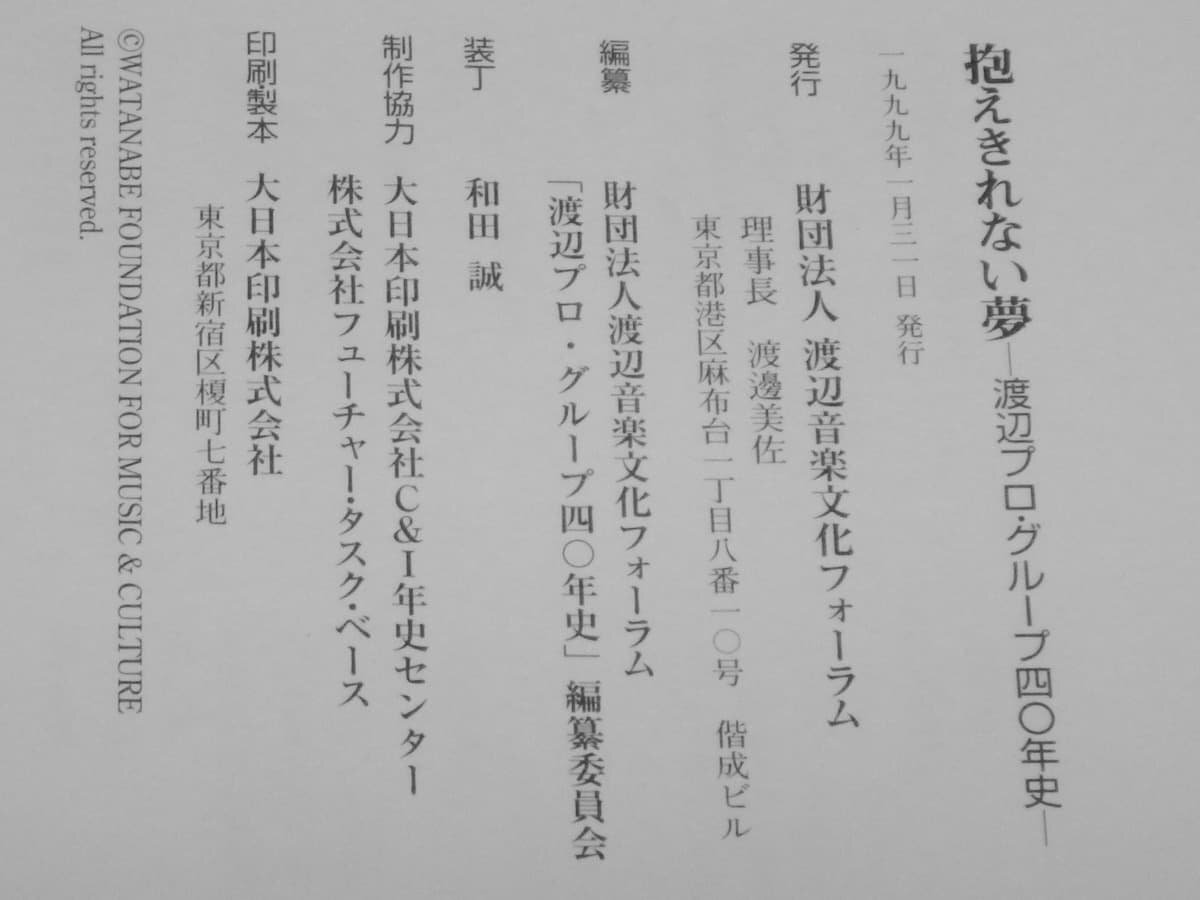 抱えきれない夢—渡辺プロ・グループ四〇年史—
一九九九年一月三一日 発行
発行 財団法人 渡辺音楽文化フォーラム
理事長 渡邊美佐
東京都港区麻布台一丁目八番一〇号 偕成ビル
編纂 財団法人渡辺音楽文化フォーラム
「渡辺プロ・グループ四〇年史」編纂委員会
装丁 和田 誠
制作協力 大日本印刷株式会社C&I年史センター
株式会社フューチャー・タスク・ベース
印刷・製本 大日本印刷株式会社
東京都新宿区榎町七番地
©WATANABE FOUNDATION FOR MUSIC & CULTURE
All rights reserved.